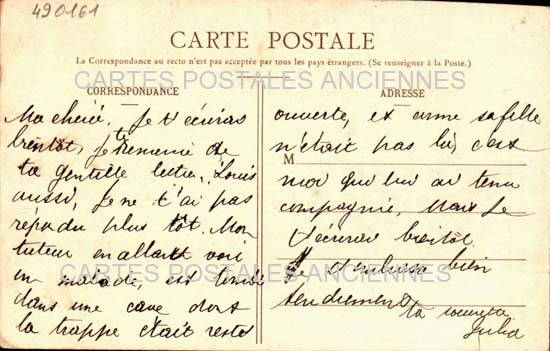 490161
CARTE POSTALE
La Correspondance au recto n'est pas acceptée par tous les pays étrangers. (Se renseigner à la Poste.)
CARTES POSTALES ANCIENNES
CORRESPONDANCE
Ma chérie, Je t'écrirai
bientôt, Je te remercie de
ta gentille lettre, Louis
aussi, Je ne t'ai pas
répondu plus tôt. Mon
tuteur en allant voir
un malade, est tombé
dans une cave dont
la trappe était restée
ADRESSE
ouverte, et comme sa fille
n'était pas là, c'est
M
moi qui lui ai tenu
compagnie, Mais Je
t'écrirai bientôt
Je t'embrasse bien
tendrement
ta soeurette
Julia
CARTES POSTALES ANCIENNES